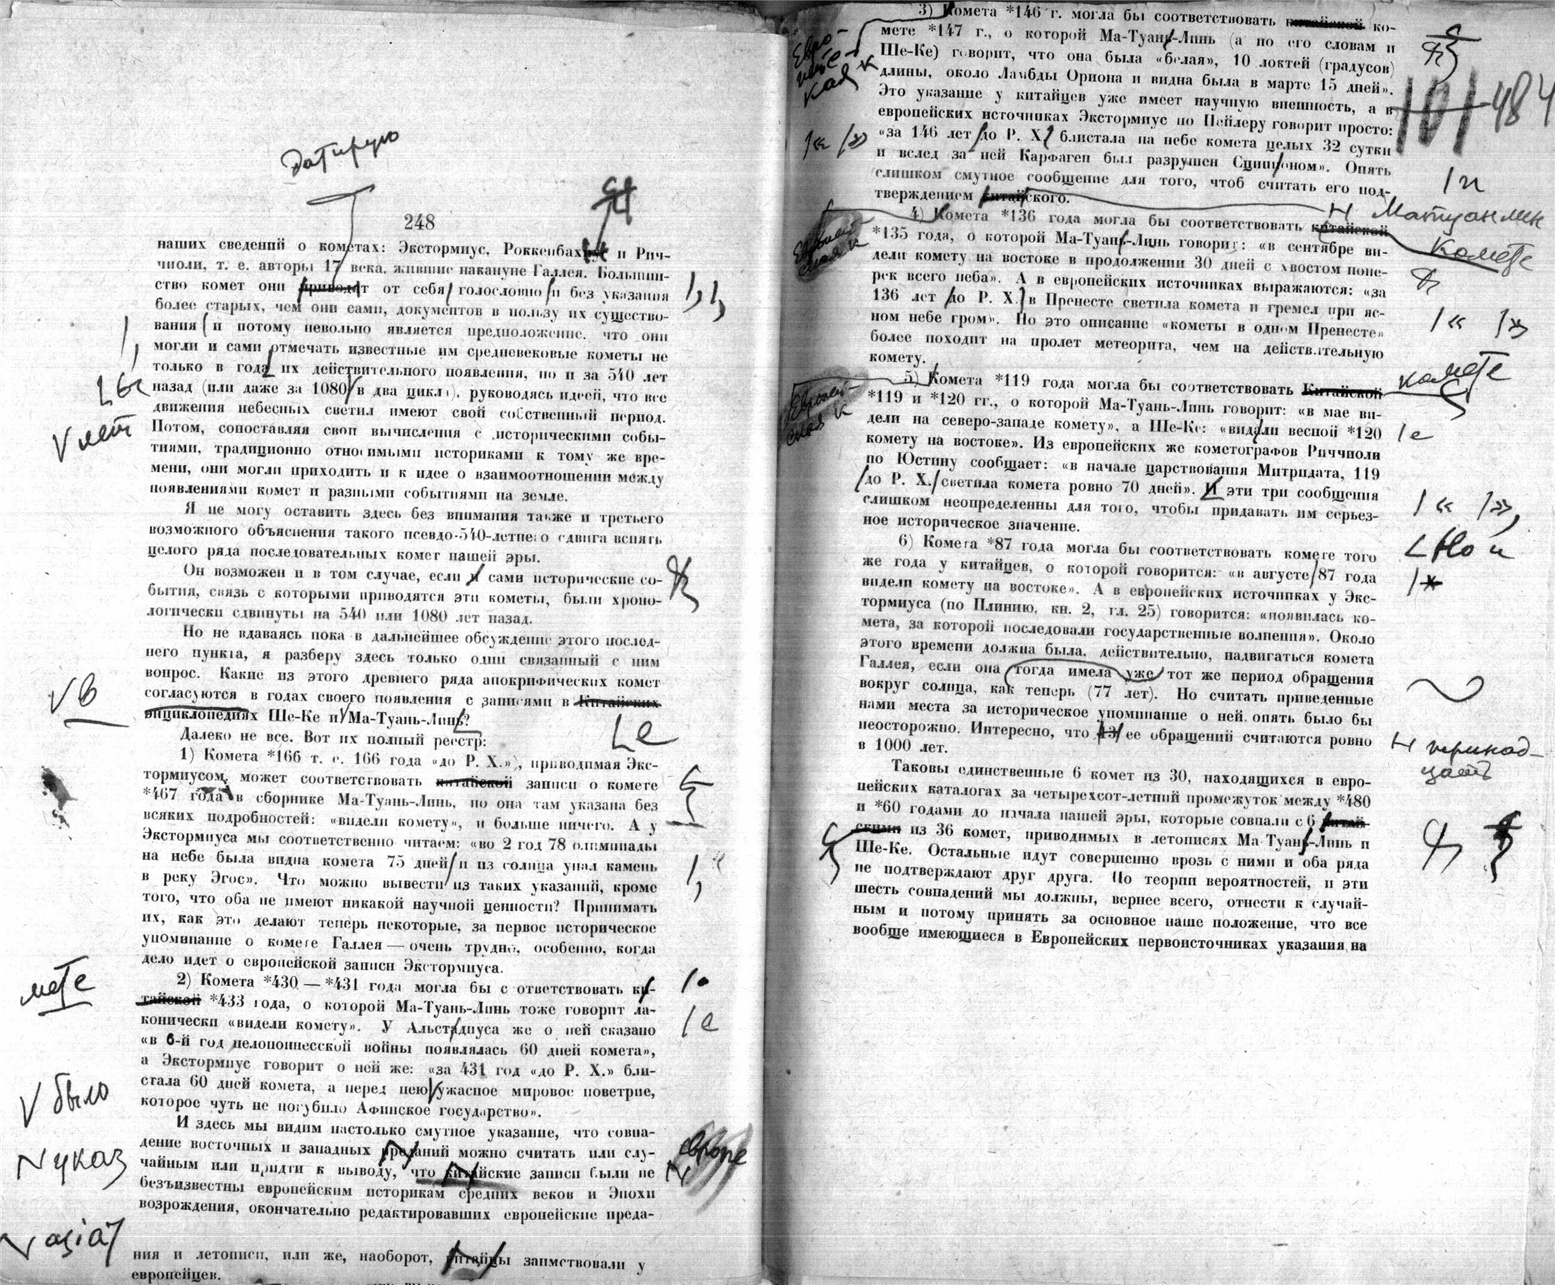 Датирую
248
наших сведений о кометах: Экстормиус, Роккенбах и Рич-
чиоли, т. е. авторы 17 века, жившие накануне Галлея. Большин-
ство комет они приводят от себя голословно и без указания
более старых, чем они сами, документов в пользу их существо-
вания и потому невольно является предположение, что они
могли и сами отмечать известные им средневековые кометы не
только в года их действительного появления, но и за 540 лет
назад (или даже за 1080 в два цикла), руководясь идеей, что все
движения небесных светил имеют свой собственный период.
Потом, сопоставляя свои вычисления с историческими собы-
тиями, традиционно относимыми историками к тому же вре-
мени, они могли приходить и к идее о взаимоотношении между
появлениями комет и разными событиями на земле.
Я не могу оставить здесь без внимания также и третьего
возможного объяснения такого псевдо-540-летнего сдвига вспять
целого ряда последовательных комет нашей эры.
Он возможен и в том случае, если и сами исторические со-
бытия, связь с которыми приводятся эти кометы, были хроно-
логически сдвинуты на 540 или 1080 лет назад.
Но не вдаваясь пока в дальнейшее обсуждение этого послед-
него пункта, я разберу здесь только один связанный с ним
вопрос. Какие из этого древнего ряда апокрифических комет
согласуются в годах своего появления с записями в Китайских
энциклопедиях Ше-Ке и Ма-Туань-Линь?
Далеко не все. Вот их полный реестр:
1) Комета *166 т. е. 166 года «до Р. Х.»), приводимая Экс-
тормиусом, может соответствовать китайской записи о комете
*467 года в сборнике Ма-Туань-Линь, но она там указана без
всяких подробностей: «видели комету», и больше ничего. А у
Экстормиуса мы соответственно читаем: «во 2 год 78 олимпиады
на небе была видна комета 75 дней и из солнца упал камень
в реку Эгос». Что можно вывести из таких указаний, кроме
того, что оба не имеют никакой научной ценности? Принимать
их, как это делают теперь некоторые, за первое историческое
упоминание о комете Галлея — очень трудно, особенно, когда
дело идет о европейской записи Экстормиуса.
2) Комета *430 — *431 года могла бы соответствовать ки-
тайской *433 года, о которой Ма-Туань-Линь тоже говорит ла-
конически «видели комету». У Альстдиуса же о ней сказано
«в 6-й год пелопоннесской войны появлялась 60 дней комета»,
а Экстормиус говорит о ней же: «за 431 год «до Р. Х.» бли-
стала 60 дней комета, а перед нею ужасное мировое поветрие,
которое чуть не погубило Афинское государство».
И здесь мы видим настолько смутное указание, что совпа-
дение восточных и западных преданий можно считать или слу-
чайным или придти к выводу, что китайские записи были не
безызвестны европейским историкам средних веков и Эпохи
возрождения, окончательно редактировавших европейские преда-
ния и летописи, или же, наоборот, китайцы заимствовали у
европейцев.
лет
в
е
мете
было
указ
азіат
Европе
3) Комета *146 г. могла бы соответствовать китайской ко-
мете *147 г., о которой Ма-Туань-Линь (а по его словам и
Ше-Ке) говорит, что она была «белая», 10 локтей (градусов)
длины, около Ламбды Ориона и видна была в марте 15 дней».
Это указание у китайцев уже имеет научную внешность, а в
европейских источниках Экстормиус по Цейлеру говорит просто:
«за 146 лет до Р. Х. блистала на небе комета целых 32 сутки
и вслед за ней Карфаген был разрушен Сципионом». Опять
слишком смутное сообщение для того, чтоб считать его под-
тверждением китайского.
4) Комета *136 года могла бы соответствовать китайской
*135 года, о которой Ма-Туань-Линь говорит: «в сентябре ви-
дели комету на востоке в продолжении 30 дней с хвостом попе-
рек всего неба». А в европейских источниках выражаются: «за
136 лет до Р. Х. в Пренесте светила комета и гремел при яс-
ном небе гром». Но это описание «кометы в одном Пренесте»
более походит на пролет метеорита, чем на действительную
комету.
5) Комета *119 года могла бы соответствовать Китайской
*119 и *120 гг., о которой Ма-Туань-Линь говорит: «в мае ви-
дели на северо-западе комету», а Ше-Ке: «видали весной *120
комету на востоке». Из европейских же кометографов Риччиоли
по Юстину сообщает: «в начале царствования Митридата, 119
до Р. Х. светила комета ровно 70 дней». И эти три сообщения
слишком неопределенны для того, чтобы придавать им серьез-
ное историческое значение.
6) Комета *87 года могла бы соответствовать комете того
же года у китайцев, о которой говорится: «в августе 87 года
видели комету на востоке». А в европейских источниках у Экс-
тормиуса (по Плинию, кн. 2, гл. 25) говорится: «появилась ко-
мета, за которой последовали государственные волнения». Около
этого времени должна была, действительно, надвигаться комета
Галлея, если она тогда имела уже тот же период обращения
вокруг солнца, как теперь (77 лет). Но считать приведенные
нами места за историческое упоминание о ней опять было бы
неосторожно. Интересно, что 13 ее обращений считаются ровно
в 1000 лет.
Таковы единственные 6 комет из 30, находящихся в евро-
пейских каталогах за четырехсот-летний промежуток между *480
и *60 годами до начала нашей эры, которые совпали с 6 китай-
скими из 36 комет, приводимых в летописях Ма-Туань-Линь и
Ше-Ке. Остальные идут совершенно врозь с ними и оба ряда
не подтверждают друг друга. По теории вероятностей, и эти
шесть совпадений мы должны, вернее всего, отнести к случай-
ным и потому принять за основное наше положение, что все
вообще имеющиеся в Европейских первоисточниках указания на
Европейская к
101 484
« »
и
Матуанлин
Комете
Европейская к
« »
комете
Европейская к
е
« »,
Но и
*
тринадцать